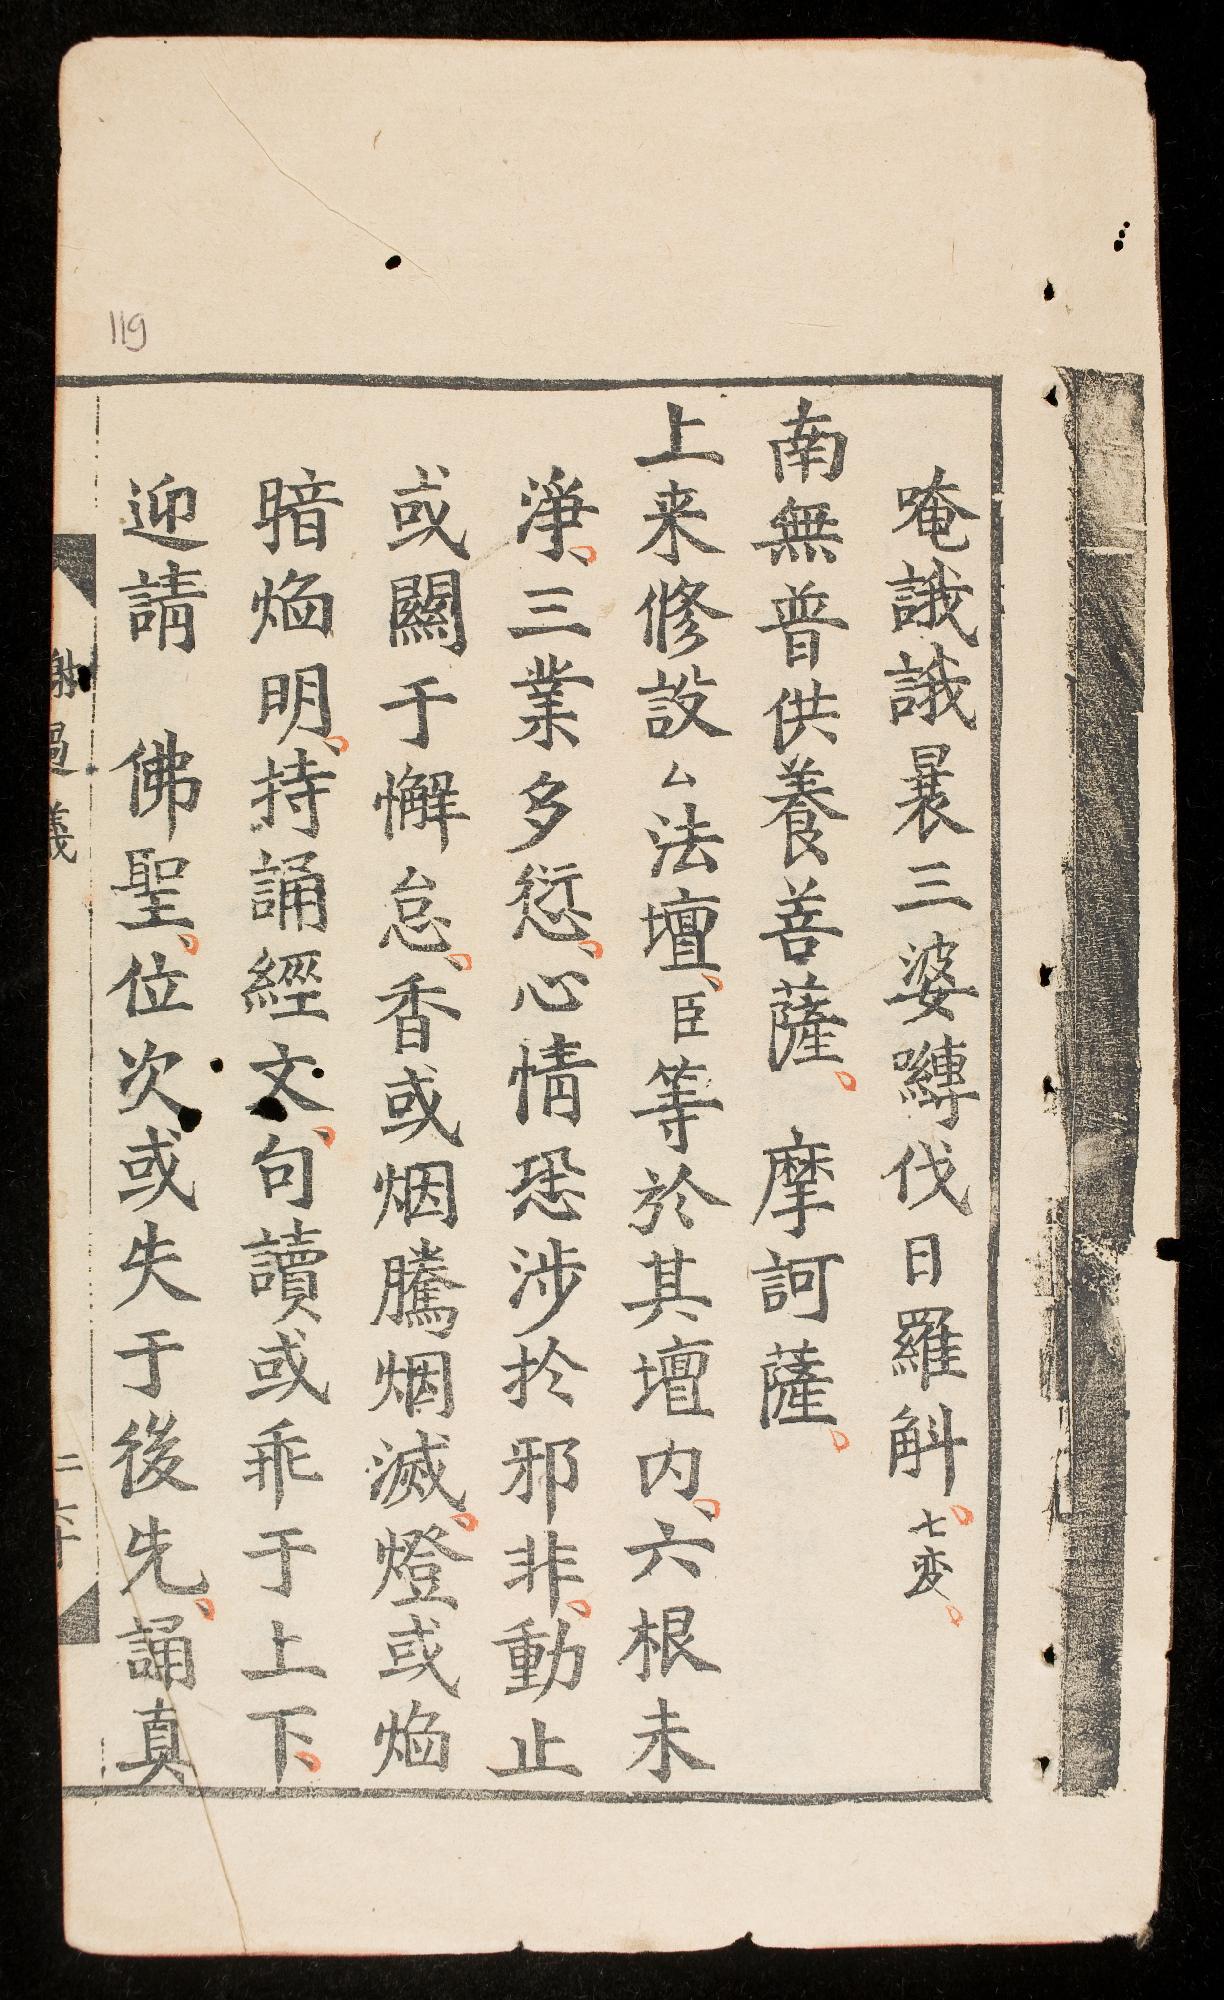 唵誐誐曩三婆嚩伐日羅斛七変
南無普供養菩薩 摩訶薩
上来修設厶法壇臣等於其壇内六根未
淨三業多愆心情恐涉扵邪非動止
或關于懈怠香或烟騰烟滅燈或焔
暗焔明持誦經文句讀或乖于上下
迎請 佛聖位次或失于後先誦真
謝過義
二六十
119